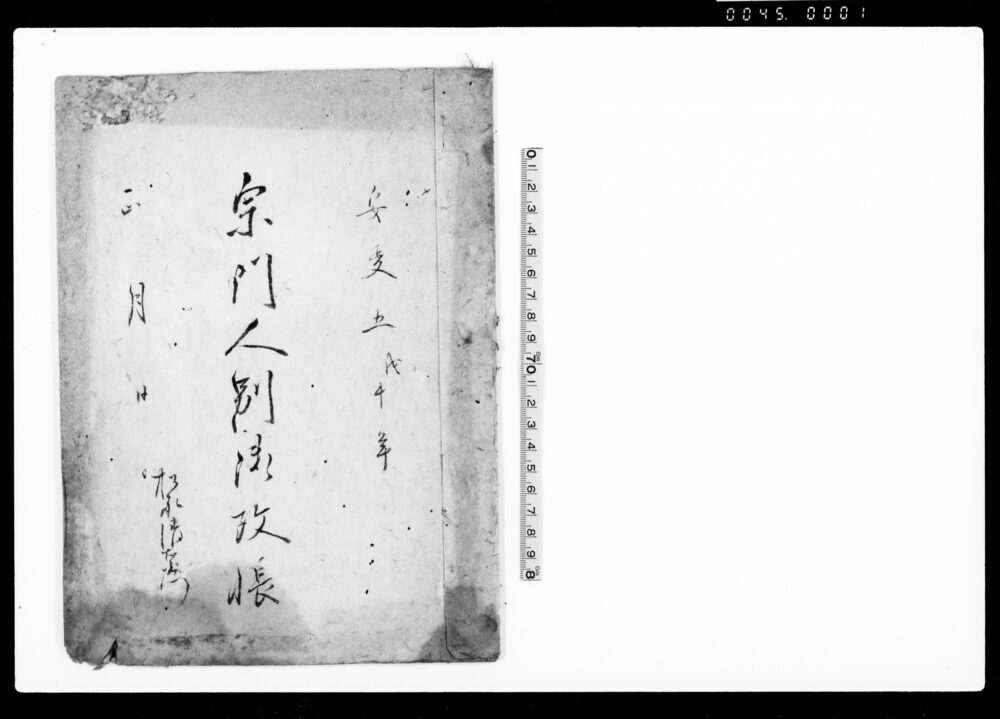 0045. 0001
安政五戊午年
宗門人別御改帳
正月日
松永清左衛門
0 1 2 3 4 5 6 7 8 9 10 1 2 3 4 5 6 7 8 9